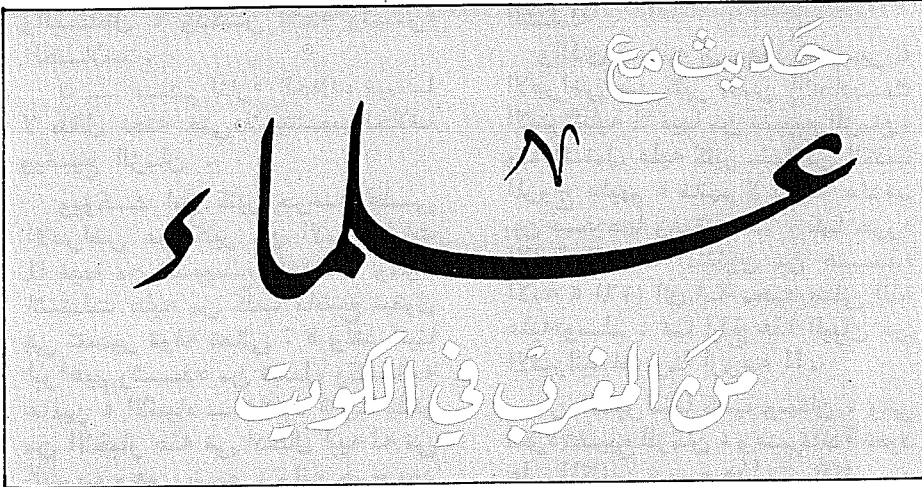 حَديث مع
علماء
منَ المغربْ في الكويت